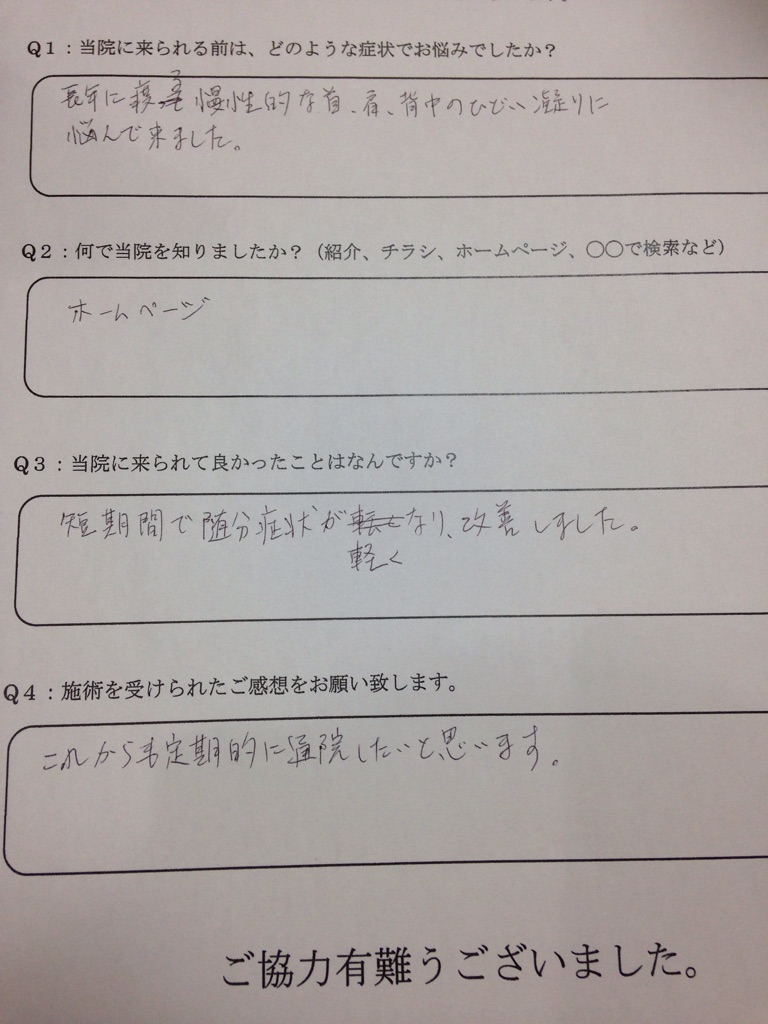 Q1：当院に来られる前は、どのような症状でお悩みでしたか？
長年に 慢性的な首、肩、背中のひどい凝りに
悩んで来ました。
Q2：何で当院を知りましたか？（紹介、チラシ、ホームページ、〇〇で検索など）
ホームページ
Q3：当院に来られて良かったことはなんですか？
短期間で随分症状が軽くなり、改善しました。
Q4：施術を受けられたご感想をお願い致します。
これからも定期的に通院したいと思います。
ご協力有難うございました。